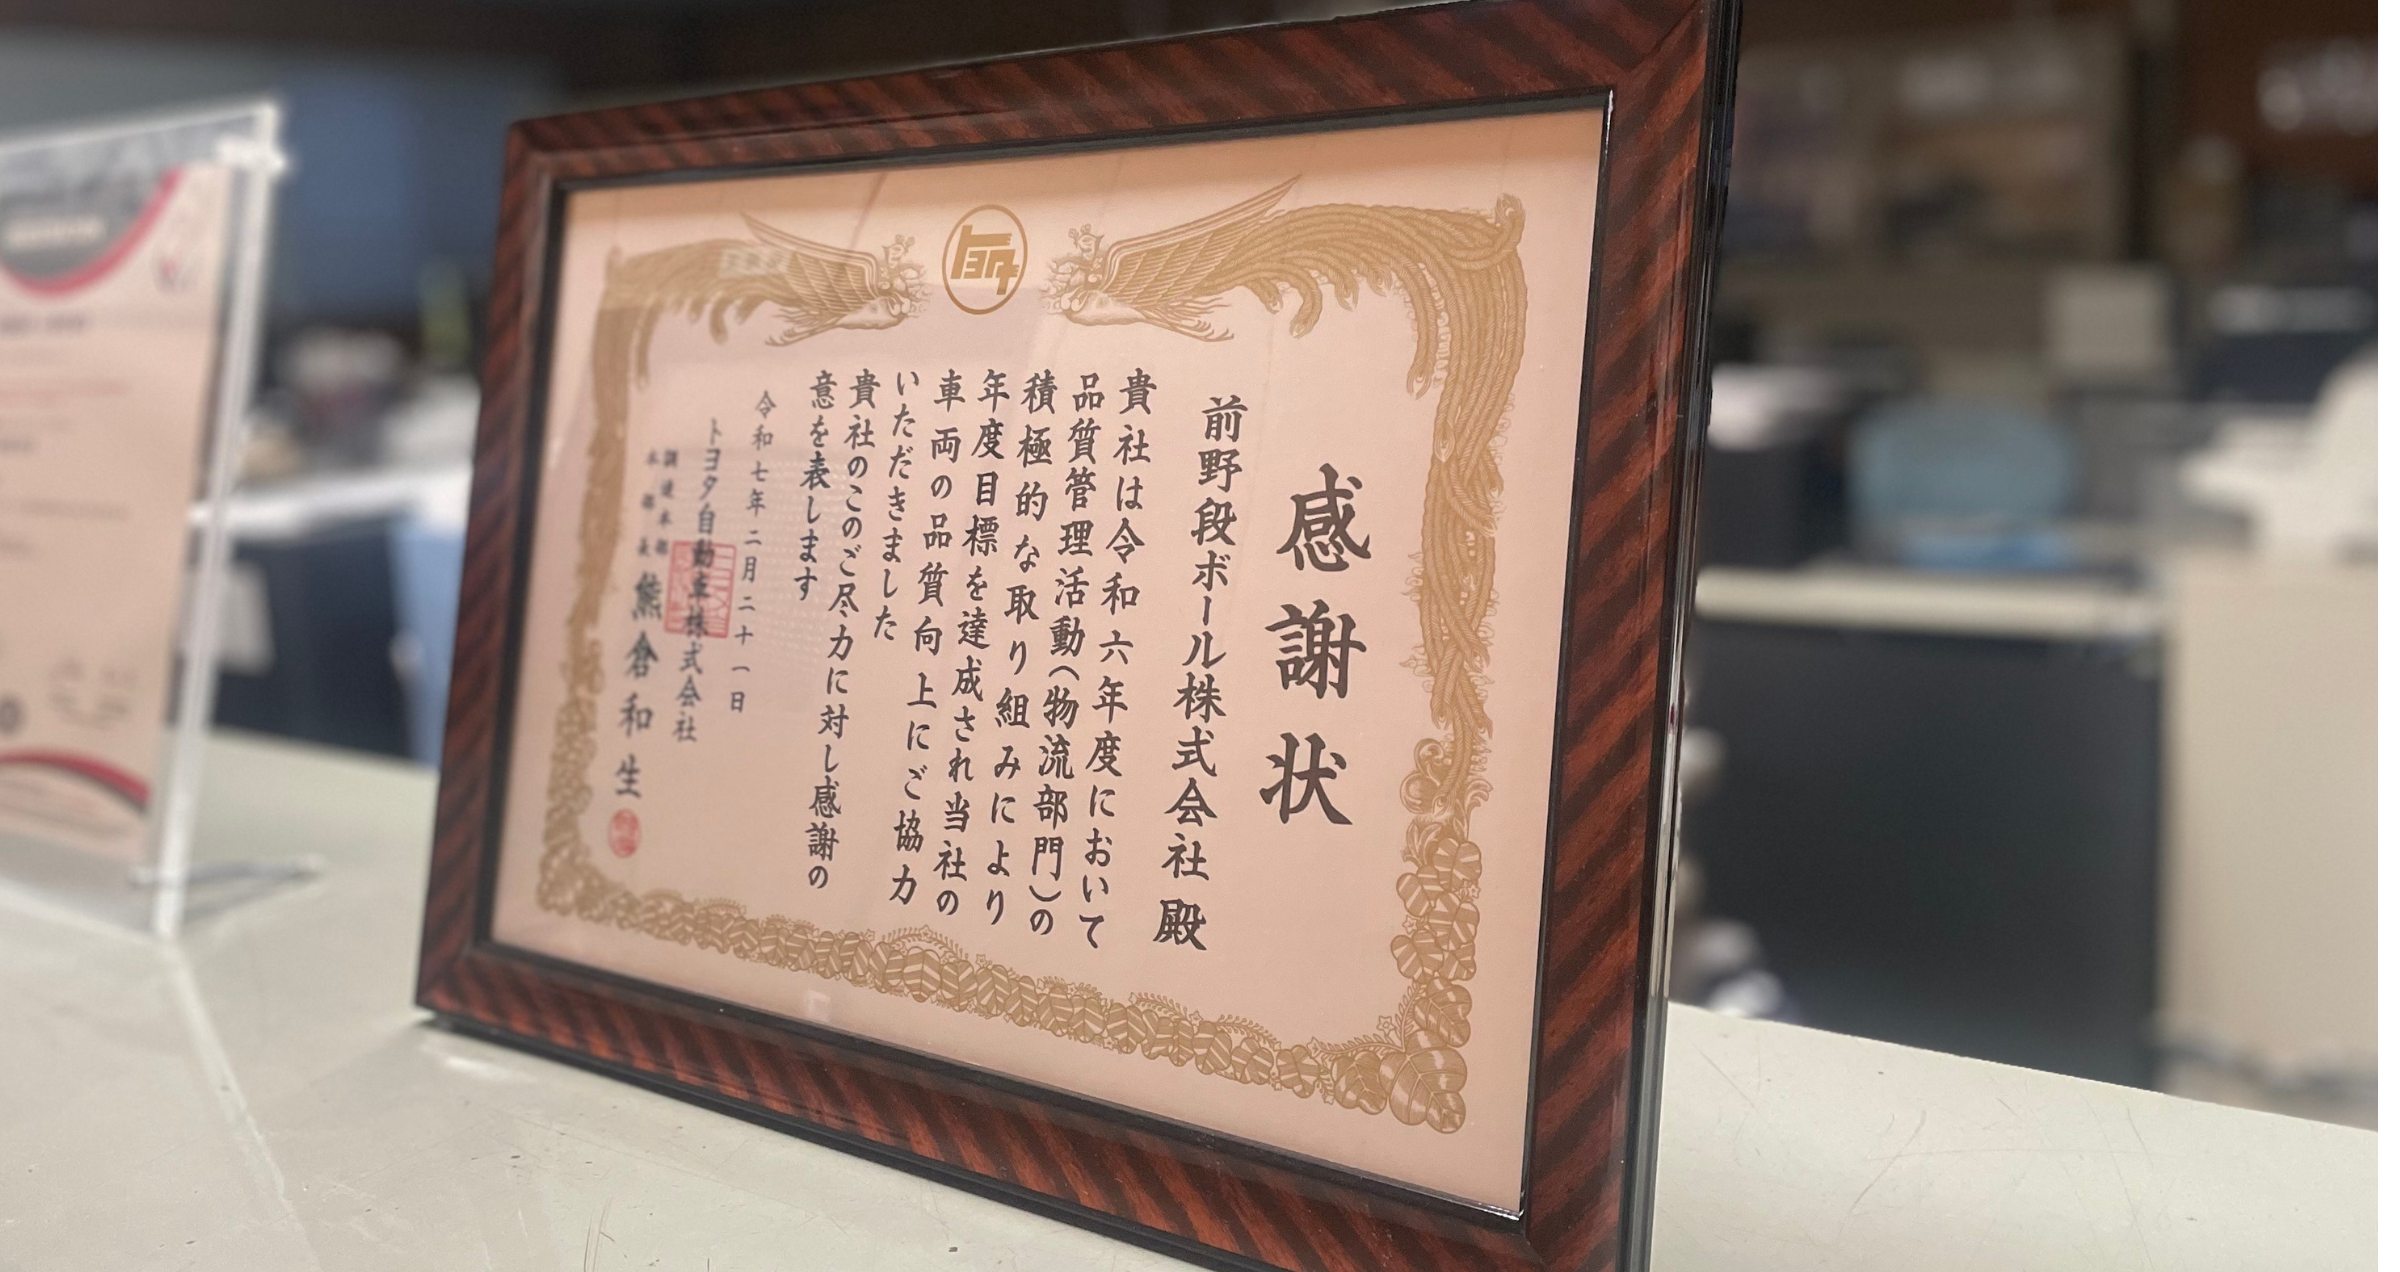 トヨタ
感謝状
前野段ボール株式会社 殿
貴社は令和六年度において
品質管理活動(物流部門)の
積極的な取り組みにより
年度目標を達成され当社の
車両の品質向上にご協力
いただきました
貴社のこのご尽力に対し感謝の
意を表します
令和七年二月二十一日
トヨタ自動車株式会社
調達本部
本部長 熊倉和生